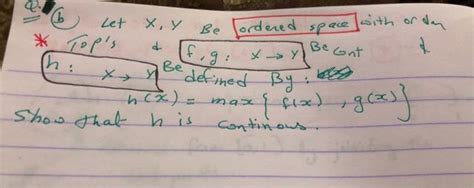 Q: (b) Let X, Y Be ordered space with order
* Top's & f, g: X → Y Be cont &
h: X → Y Be defined By:
h(x) = max { f(x), g(x) }
Show that h is continous.